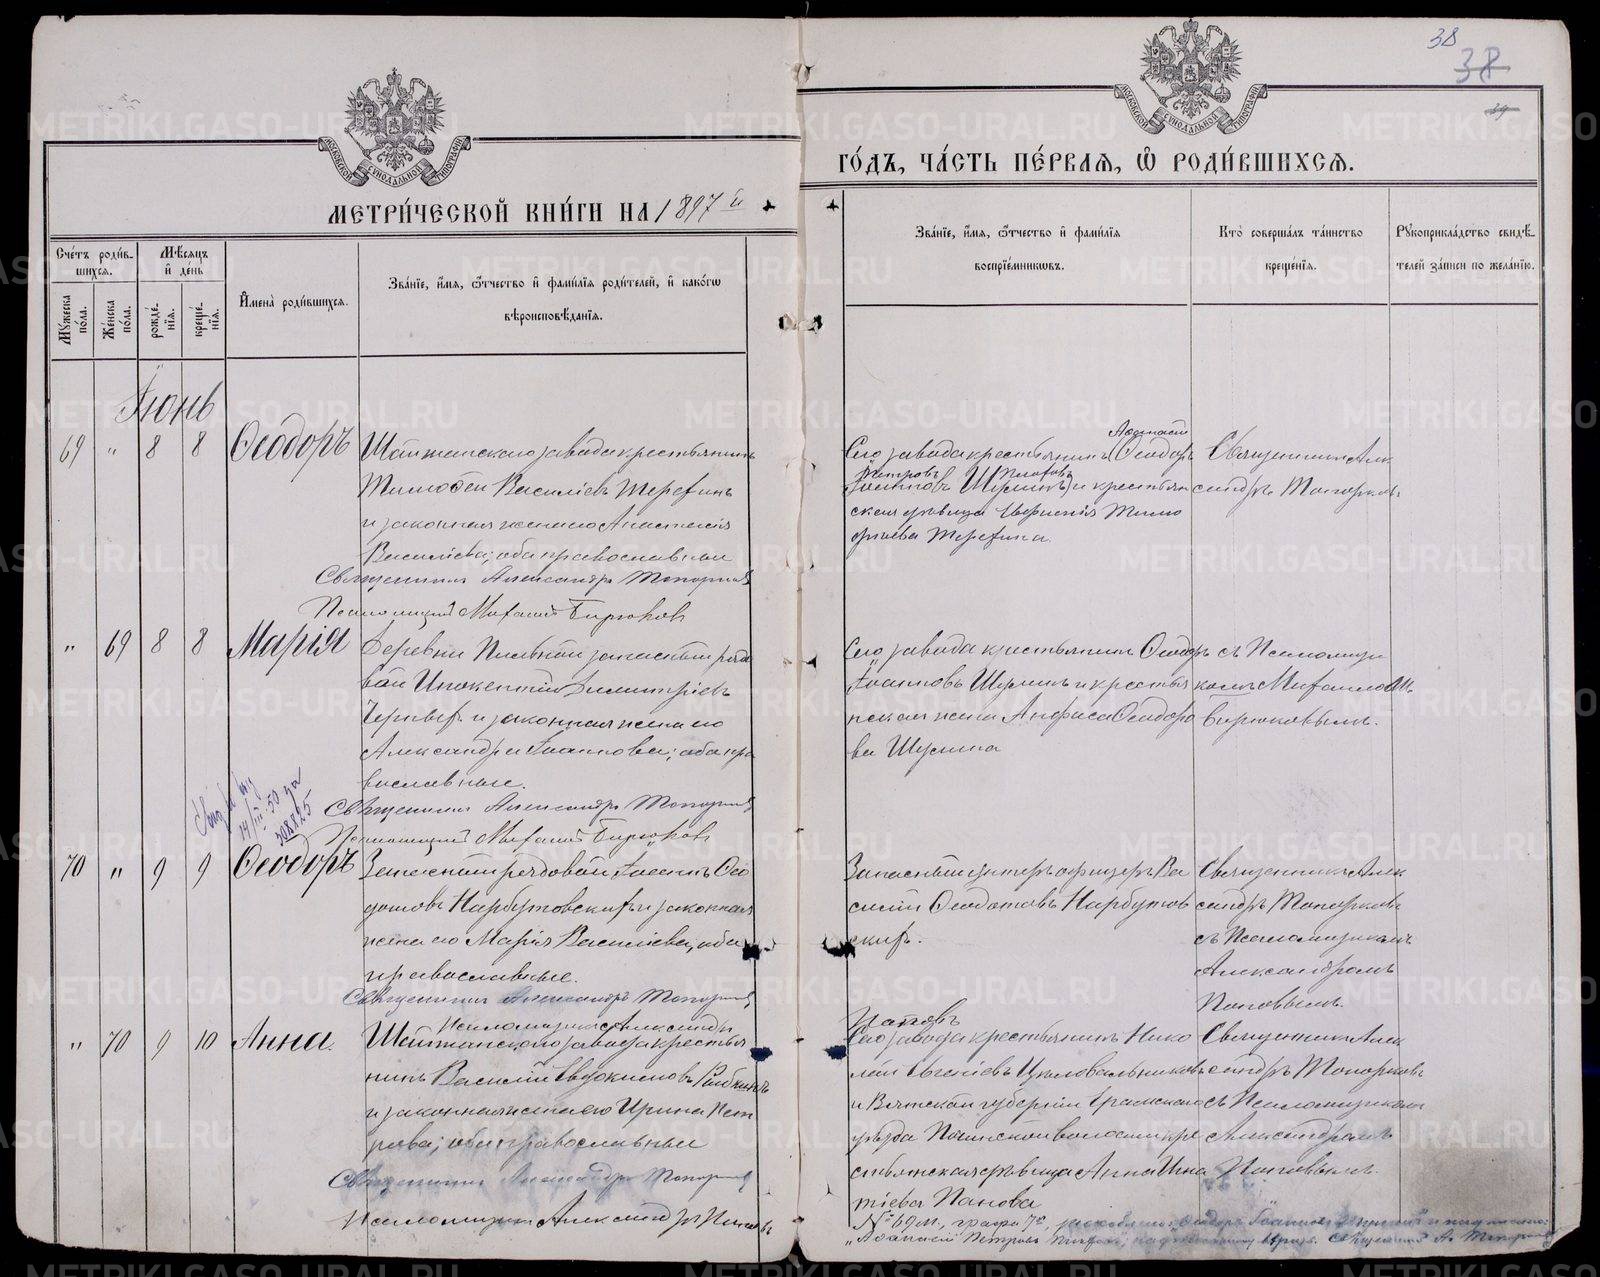 38
38
МЕТРИ́ЧЕСКОЙ КНИ́ГИ НА 1897 й
ГО́ДЪ, ЧА́СТЬ ПЕ́РВАЯ, Ѡ҆ РОДИ́ВШИХСЯ.
Сче́тъ роди́в-
шихся.
Мꙋ́жеска по́ла.
Же́нска по́ла.
Мѣ́сяцъ и҆ де́нь
рожде́-нїя.
креще́-нїя.
И҆мена̀ роди́вшихся.
Зва́нїе, и҆́мя, ѻ҆́тчество и҆ фами́лїя роди́телей, и҆ како́гѡ
вѣроисповѣ́данїя.
Зва́нїе, и҆́мя, ѻ҆́тчество и҆ фами́лїя
воспрїе́мниковъ.
Кто̀ соверша́лъ та́инство
креще́нїя.
Рꙋкоприкла́дство свидѣ́-
телей за́писи по жела́нїю.
Іюнь
69 " 8 8 Ѳеодоръ
Шайтанскаго завода крестьянинъ
Тимоѳей Василіевъ Терехинъ
и законная жена его Анастасія
Василіева; оба православные
Священникъ Александръ Топорковъ
Псаломщикъ Михаилъ Бирюковъ
Аѳанасій
Сего завода крестьянинъ Ѳеодоръ
Петровъ
Іоанновъ Шулинъ и крестьян
ская дѣвица Тимо
ѳиева Терехина.
Священникъ Алек
сандръ Топорковъ
" 69 8 8 Марія
Деревни запасный рядо
вой Иннокентій Димитріевъ
и законная жена его
Александра Іоаннова; оба пра
вославные.
Священникъ Александръ Топорковъ
Псаломщикъ Михаилъ Бирюковъ
Сего завода крестьянинъ Ѳеодоръ
Іоанновъ Шулинъ и крестья
нская жена Анфиса Ѳеодоро
ва Шулина
съ Псаломщи
комъ Михаиломъ
Бирюковымъ.
14/III-50
70 " 9 9 Ѳеодоръ
Запасный рядовой Іоаннъ Ѳео
дотовъ Нарбутовскихъ и законная
жена его Марія Василіева, оба
православные.
Священникъ Александръ Топорковъ
Псаломщикъ Александръ
Попов
Запасный унтеръ офицеръ Ва
силій Ѳеодотовъ Нарбутов
скихъ.
Священникъ Алек
сандръ Топорковъ
съ Псаломщикомъ
Александромъ
Поповымъ.
" 70 9 10 Анна.
Шайтанскаго завода крестья
нинъ Василій Евдокимовъ
и законная жена его Ирина Пет
рова; оба православные
Священникъ Александръ Топорковъ
Псаломщикъ Александръ Поповъ
Сего завода крестьянинъ Нико
лай Евгеніевъ Цѣловальниковъ
и Вятской губерніи
уѣзда волости кре
стьянская дѣвица Анна Игна
тіева Панова
Священникъ Алек
сандръ Топорковъ
съ Псаломщикомъ
Александромъ
Поповымъ.
№ 69 м., графа
"Аѳанасій Петровъ